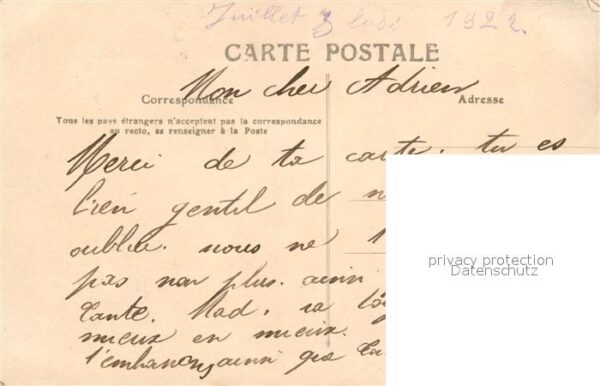 Juillet 3 lundi 1922.
CARTE POSTALE
Mon cher Adrien
Correspondance
Adresse
Tous les pays étrangers n'acceptent pas la correspondance
au recto, se renseigner à la Poste
Merci de ta carte. tu es
bien gentil de n
oublier. nous ne t
pas non plus. ainsi
tante. Mad. va tou
mieux en mieux.
t'embrassons, ainsi que ta
privacy protection
Datenschutz